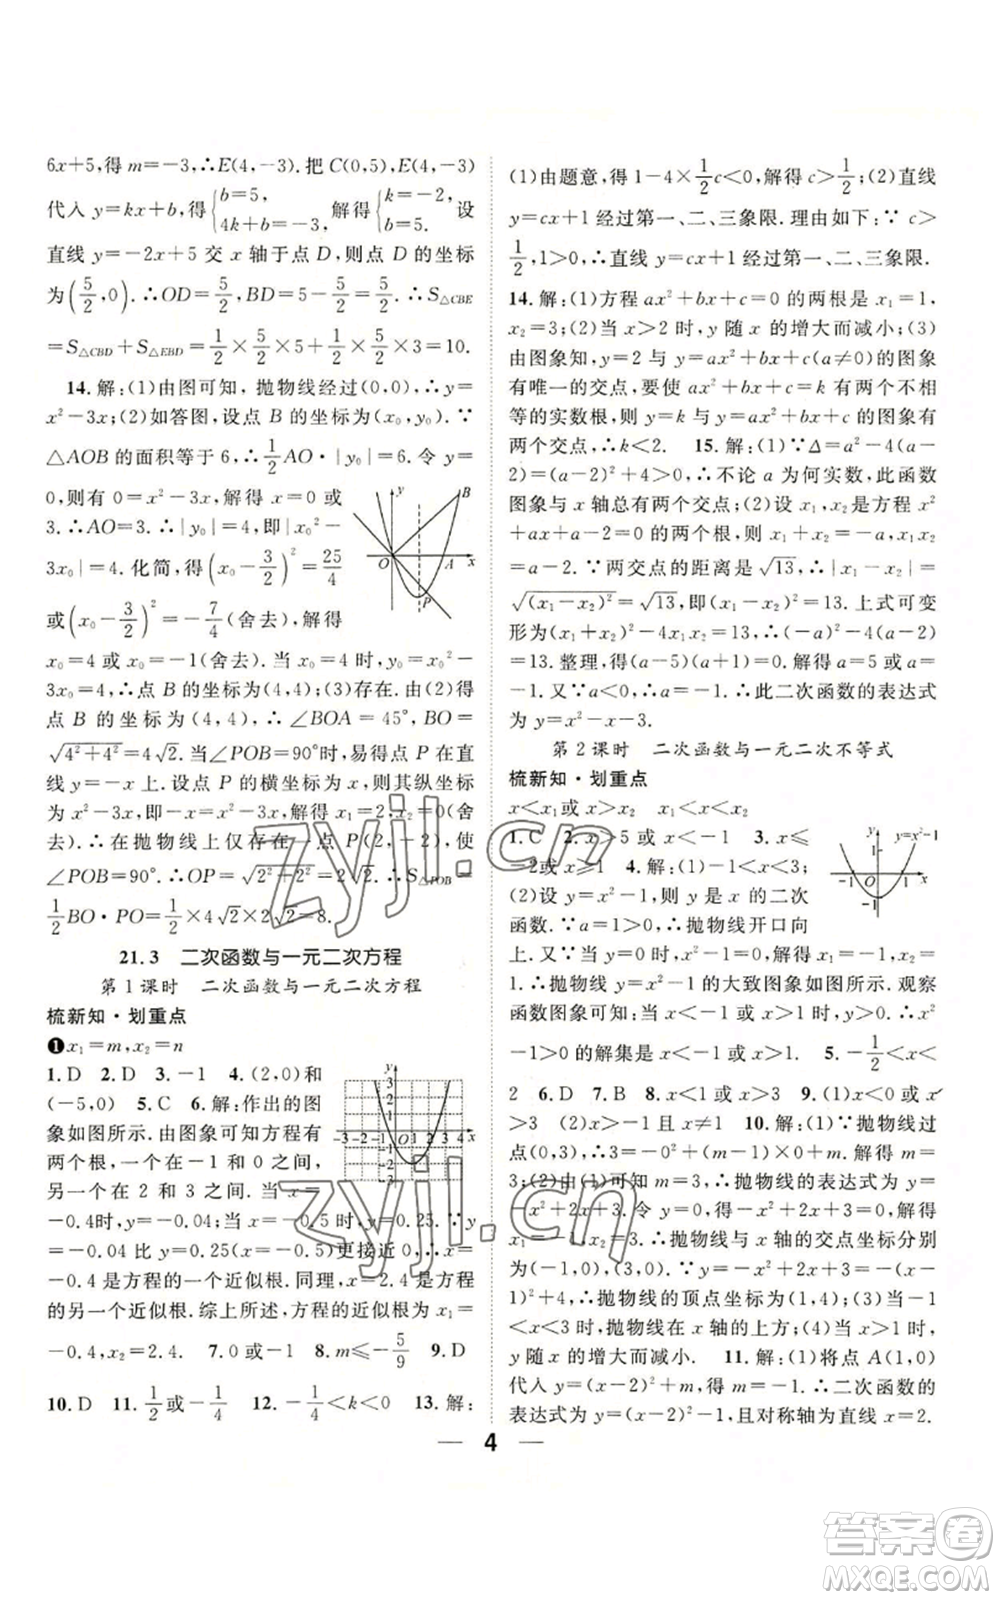 6x+5,得 m=-3,∴E(4,-3).把 C(0,5),E(4,-3)
代入 y=kx+b,得{b=5, 4k+b=-3, 解得{k=-2, b=5. 设
直线 y=-2x+5 交 x 轴于点 D,则点 D 的坐标
为(5/2,0).∴OD=5/2,BD=5-5/2=5/2.∴S△CBE
=S△CBD+S△EBD=1/2×5/2×5+1/2×5/2×3=10.
14.解:(1)由图可知,抛物线经过(0,0),∴y=
x²-3x;(2)如答图,设点 B 的坐标为(x₀,y₀).∵
△AOB 的面积等于 6,∴1/2AO·|y₀|=6.令 y=
0,则有 0=x²-3x,解得 x=0 或 x=
3.∴AO=3.∴|y₀|=4,即|x₀²-
3x₀|=4.化简,得(x₀-3/2)²=25/4
或(x₀-3/2)²=-7/4(舍去).解得
x₀=4 或 x₀=-1(舍去).当 x₀=4 时,y₀=x₀²-
3x₀=4,∴点 B 的坐标为(4,4);(3)存在.由(2)得
点 B 的坐标为(4,4),∴∠BOA=45°,BO=
√4²+4²=4√2.当∠POB=90°时,易得点 P 在直
线 y=-x 上.设点 P 的横坐标为 x,则其纵坐标为
x²-3x,即-x=x²-3x,解得 x₁=2,x₂=0(舍
去).∴在抛物线上仅存在一点 P(2,-2),使
∠POB=90°.∴OP=√2²+2²=2√2.∴S△POB=
1/2BO·PO=1/2×4√2×2√2=8.
y
B
O
A
x
P
21.3 二次函数与一元二次方程
第 1 课时 二次函数与一元二次方程
梳新知·划重点
❶x₁=m,x₂=n
1.D 2.D 3.-1 4.(2,0)和
(-5,0) 5.C 6.解:作出的图
象如图所示.由图象可知方程有
两个根,一个在-1 和 0 之间,
另一个在 2 和 3 之间.当 x=
-0.4 时,y=-0.04;当 x=-0.5 时,y=0.25.∵y
=-0.04 比 y=0.25(x=-0.5)更接近 0,∴x=
-0.4 是方程的一个近似根.同理,x=2.4 是方程
的另一个近似根.综上所述,方程的近似根为 x₁=
-0.4,x₂=2.4. 7.0 或-1 8.m≤-5/9 9.D
10.D 11.1/2或-1/4 12.-1/4<k<0 13.解:
(1)由题意,得 1-4×1/2c<0,解得 c>1/2;(2)直线
y=cx+1 经过第一、二、三象限.理由如下:∵c>
1/2,1>0,∴直线 y=cx+1 经过第一、二、三象限.
14.解:(1)方程 ax²+bx+c=0 的两根是 x₁=1,
x₂=3;(2)当 x>2 时,y 随 x 的增大而减小;(3)
由图象知,y=2 与 y=ax²+bx+c(a≠0)的图象
有唯一的交点,要使 ax²+bx+c=k 有两个不相
等的实数根,则 y=k 与 y=ax²+bx+c 的图象有
两个交点,∴k<2. 15.解:(1)∵Δ=a²-4(a-
2)=(a-2)²+4>0,∴不论 a 为何实数,此函数
图象与 x 轴总有两个交点;(2)设 x₁,x₂是方程 x²
+ax+a-2=0 的两个根,则 x₁+x₂=-a,x₁x₂
=a-2.∵两交点的距离是√13,∴|x₁-x₂|=
√(x₁-x₂)²=√13,即(x₁-x₂)²=13.上式可变
形为(x₁+x₂)²-4x₁x₂=13,∴(-a)²-4(a-2)
=13.整理,得(a-5)(a+1)=0.解得 a=5 或 a=
-1.又∵a<0,∴a=-1.∴此二次函数的表达式
为 y=x²-x-3.
第 2 课时 二次函数与一元二次不等式
梳新知·划重点
x<x₁或 x>x₂ x₁<x<x₂
1.C 2.x>5 或 x<-1 3.x≤
-2或 x≥1 4.解:(1)-1<x<3;
(2)设 y=x²-1,则 y 是 x 的二次
函数.∵a=1>0,∴抛物线开口向
上.又∵当 y=0 时,x²-1=0,解得 x₁=1,x₂=-
1.∴抛物线 y=x²-1 的大致图象如图所示.观察
函数图象可知:当 x<-1 或 x>1 时,y>0.∴x²-
1>0 的解集是 x<-1 或 x>1. 5.-1/2<x<
2 6.D 7.B 8.x<1 或 x>3 9.(1)x<0 或 x
>3 (2)x>-1 且 x≠1 10.解:(1)∵抛物线过
点(0,3),∴3=-0²+(m-1)×0+m.解得 m=
3;(2)由(1)知 m=3,∴抛物线的表达式为 y=
-x²+2x+3.令 y=0,则-x²+2x+3=0,解得
x₁=-1,x₂=3.∴抛物线与 x 轴的交点坐标分别
为(-1,0),(3,0).∵y=-x²+2x+3=-(x-
1)²+4,∴抛物线的顶点坐标为(1,4);(3)当-1
<x<3 时,抛物线在 x 轴的上方;(4)当 x>1 时,
y 随 x 的增大而减小. 11.解:(1)将点 A(1,0)
代入 y=(x-2)²+m,得 m=-1,∴二次函数的
表达式为 y=(x-2)²-1,且对称轴为直线 x=2.
y
y=x²-1
1
-1
O
1
x
4
zyjl.cn
zyjl.cn
答案圈
MXQE.COM